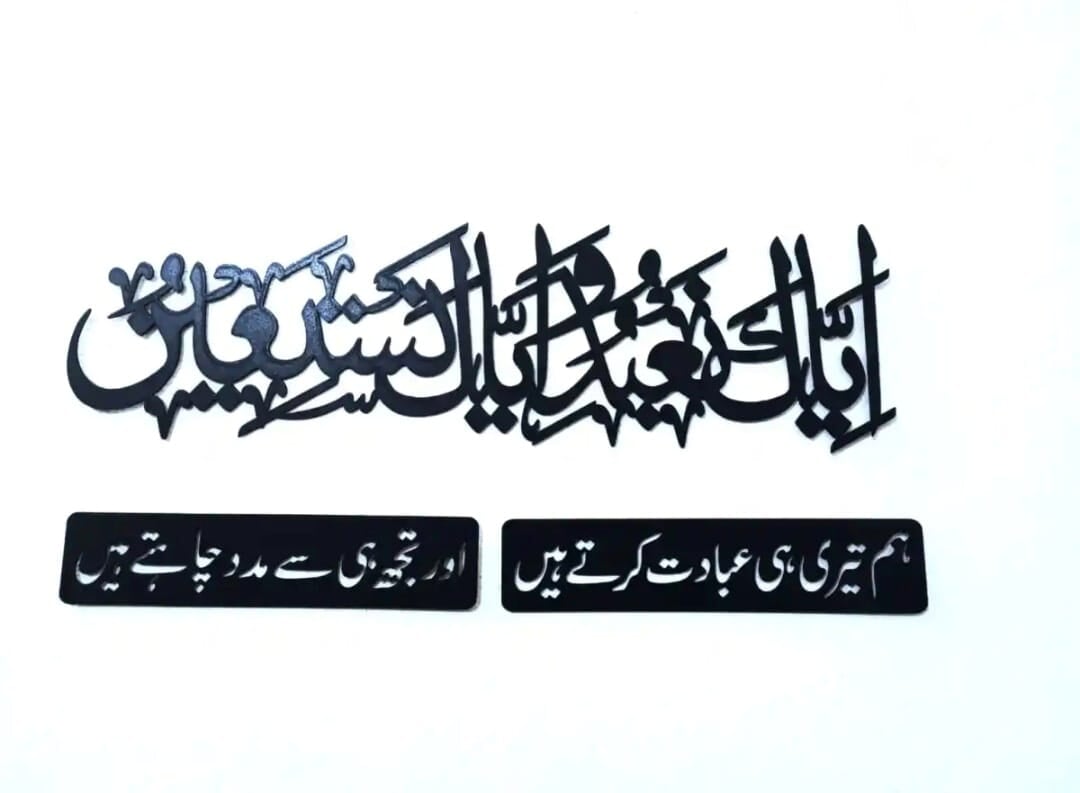 إِيَّاكَ نَعْبُدُ وَإِيَّاكَ نَسْتَعِينُ
ہم تیری ہی عبادت کرتے ہیں
اور تجھ ہی سے مدد چاہتے ہیں